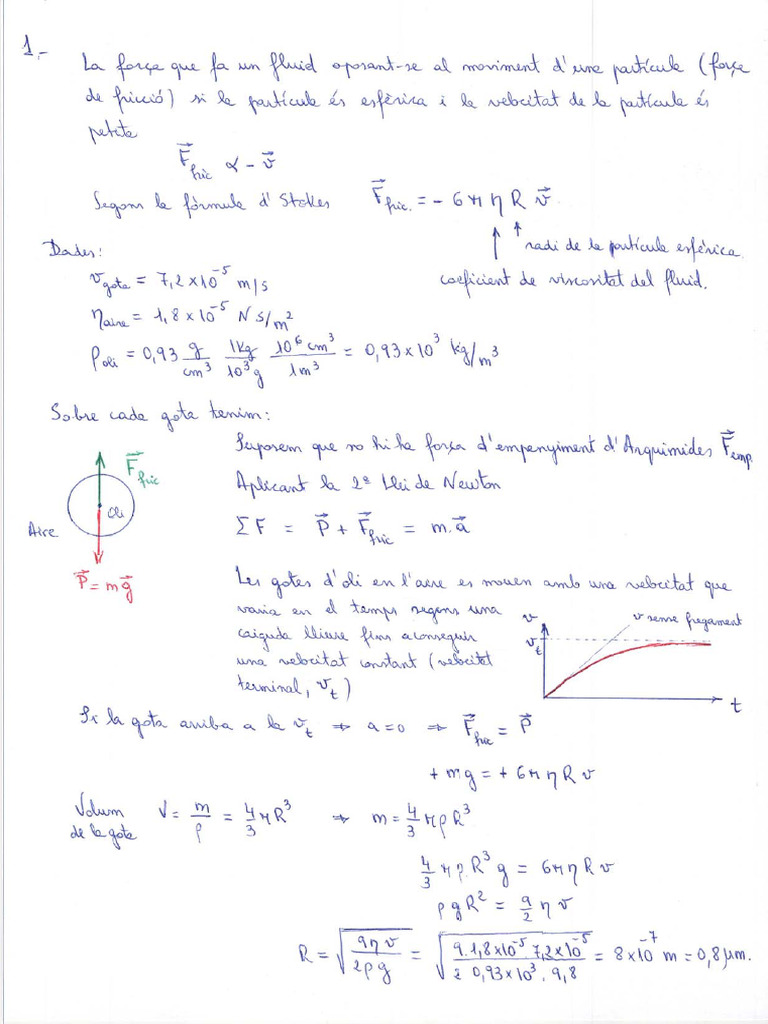 1.-
La força que fa un fluid oposant-se al moviment d'una partícula (força
de fricció) si la partícula és esfèrica i la velocitat de la partícula és
petita
F⃗fric α - v⃗
Segons la fórmula d'Stokes F⃗fric. = - 6 π η R v⃗
radi de la partícula esfèrica.
coeficient de viscositat del fluid.
Dades:
vgota = 7,2 x 10⁻⁵ m/s
ηaire = 1,8 x 10⁻⁵ N s/m²
ρoli = 0,93 g/cm³ 1kg/10³g 10⁶cm³/1m³ = 0,93 x 10³ kg/m³
Sobre cada gota tenim:
Suposem que no hi ha força d'empenyiment d'Arquimides F⃗emp.
Aplicant la 2ª Llei de Newton
F⃗fric
Oli
Aire
ΣF = P⃗ + F⃗fric = m.a⃗
P⃗ = mg⃗
Les gotes d'oli en l'aire es mouen amb una velocitat que
varia en el temps segons una
caiguda lliure fins aconseguir
una velocitat constant (velocitat
terminal, vt)
v
v sense fregament
vt
t
Si la gota arriba a la vt ⇒ a=0 ⇒ F⃗fric = P⃗
+ mg = + 6π η R v
Volum
de la gota
V = m/ρ = 4/3 πR³ ⇒ m = 4/3 πρR³
4/3 π ρ.R³ g = 6π η R v
ρgR² = 9/2 η v
R = √(9ηv/2ρg) = √(9.1,8x10⁻⁵.7,2x10⁻⁵/2 0,93x10³.9,8) = 8x10⁻⁷ m = 0,8 μm.